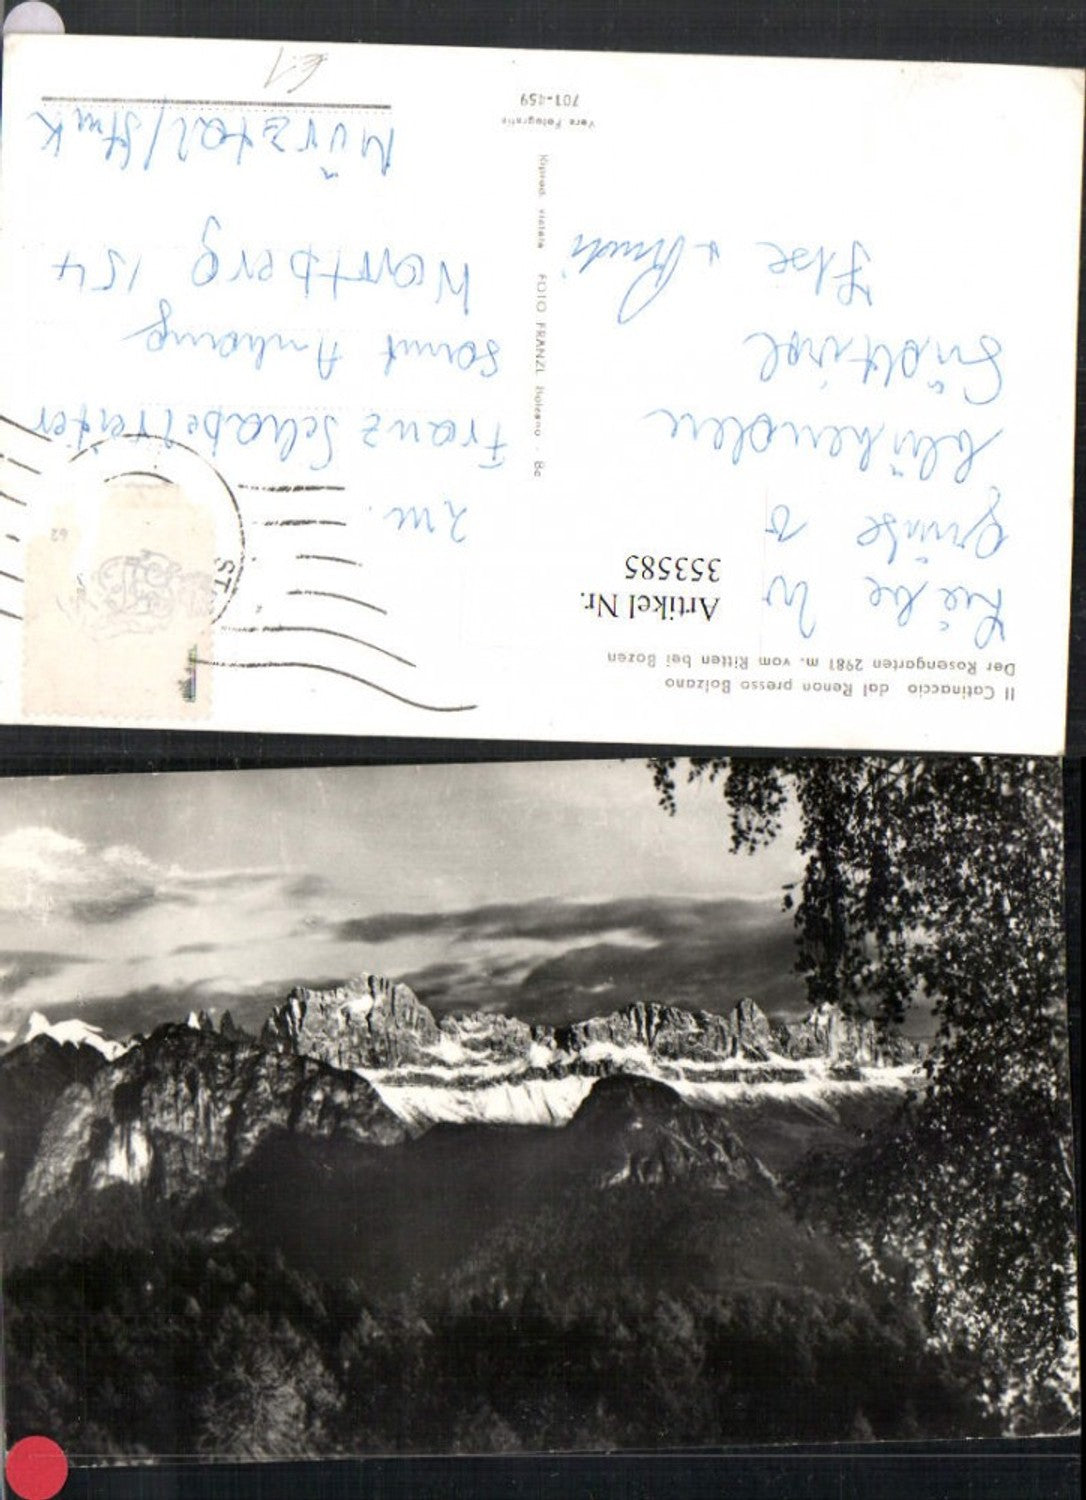 Il Catinaccio dal Renon presso Bolzano
Der Rosengarten 2981 m. vom Ritten bei Bozen
Artikel Nr.
353585
Liebe
Grüße
blühenden
Südtirol
Ilse u Rudi
Riprod. vietata FOTO FRANZL Bolzano - Bz
Vera Fotografia
701-459
Franz Schabelreiter
samt Anhang
Wartberg 154
Mürztal/Stmk
€1
ST
62